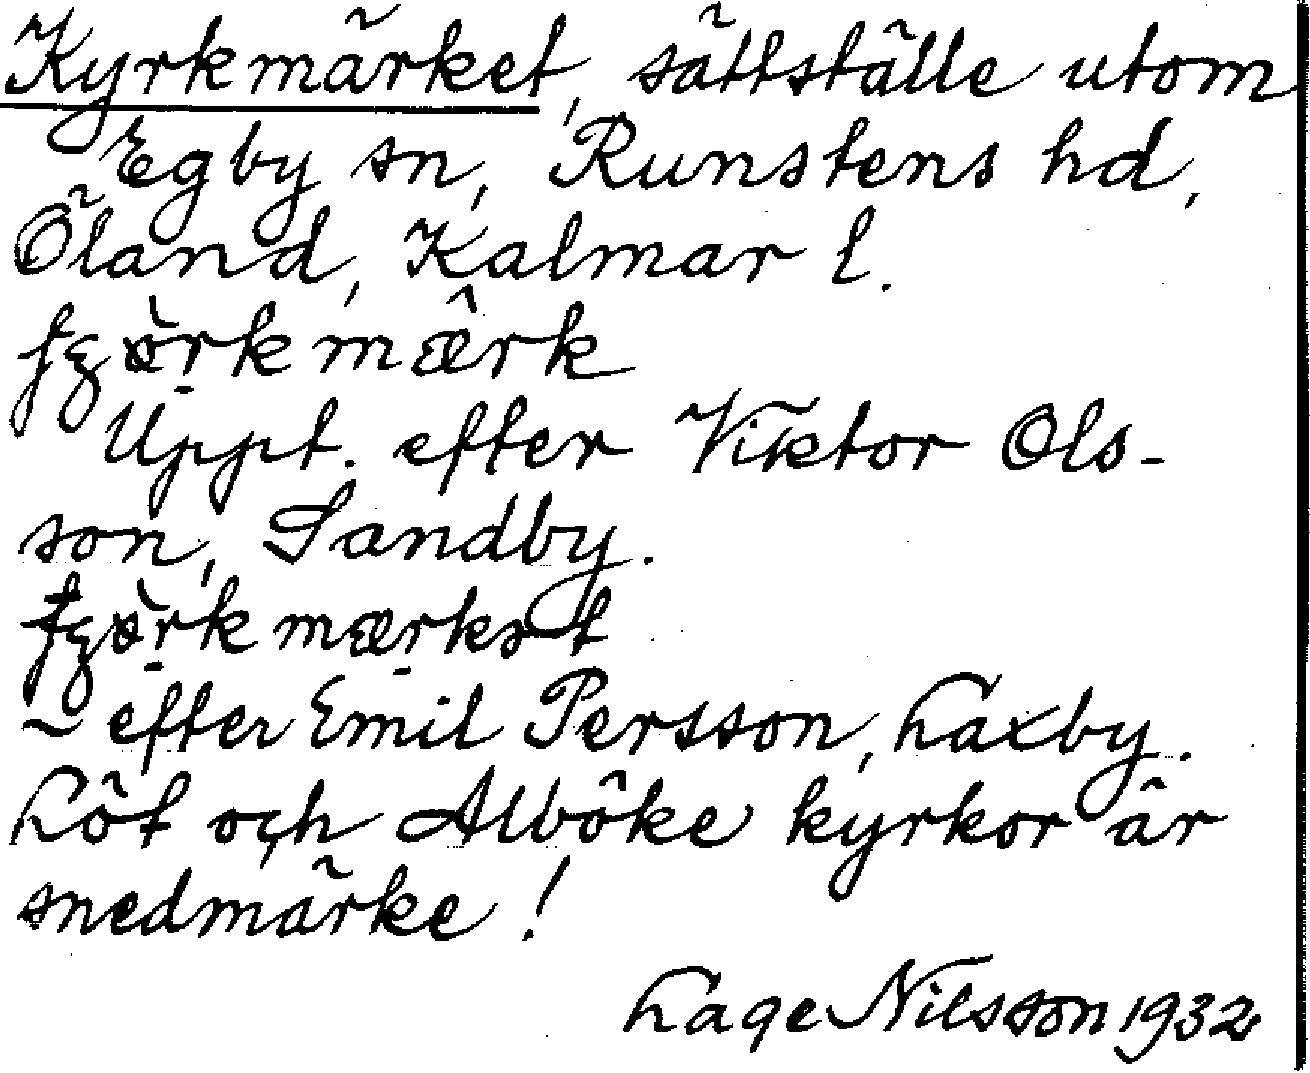 Kyrkmärket, sättställe utom
Egby sn, Runstens hd,
Öland, Kalmar l.
Uppt. efter Viktor Ols-
son, Sandby.
~ efter Emil Persson, Laxby.
Löt och Alböke kyrkor är
snedmärke!
Lage Nilsson 1932